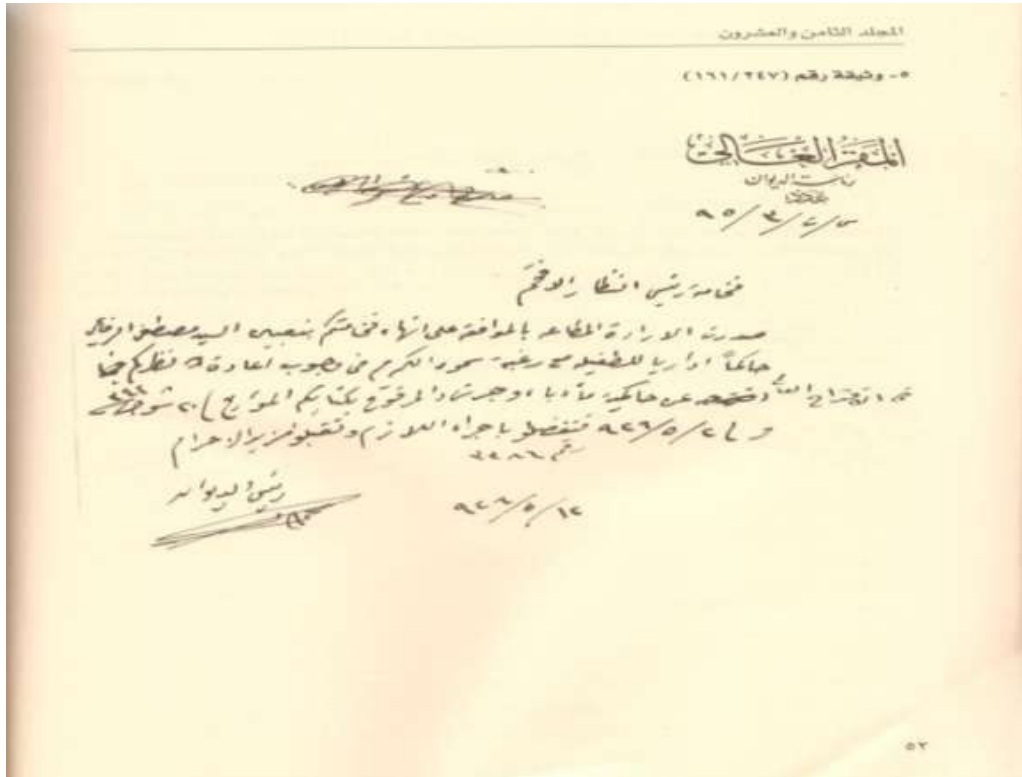 المجلد الثامن والعشرون
٥- وثيقة رقم (١٦١/٢٤٧)
المقر العالي
رئاسة الديوان
عدد
٩٥/٣/
فخامة رئيس النظار الافخم
صدرت الارادة المطاعه بالموافقة على انهاء فخامتكم بتعيين السيد مصطفى
حاكماً ادارياً للطفيله مع رغبة سموه الكريم في وجوب اعادة نظركم
عن حاكمية مأدبا وجرش والمرفوع بكتابكم المؤرخ ٢٠ شوال
و ٢/٥/٩٢٦ فتفضلوا باجراء اللازم وتقبلوا مزيد الاحترام
رقم ٣٢٨٦
رئيس الديوان
١٢/٥/٩٢٦
٥٣